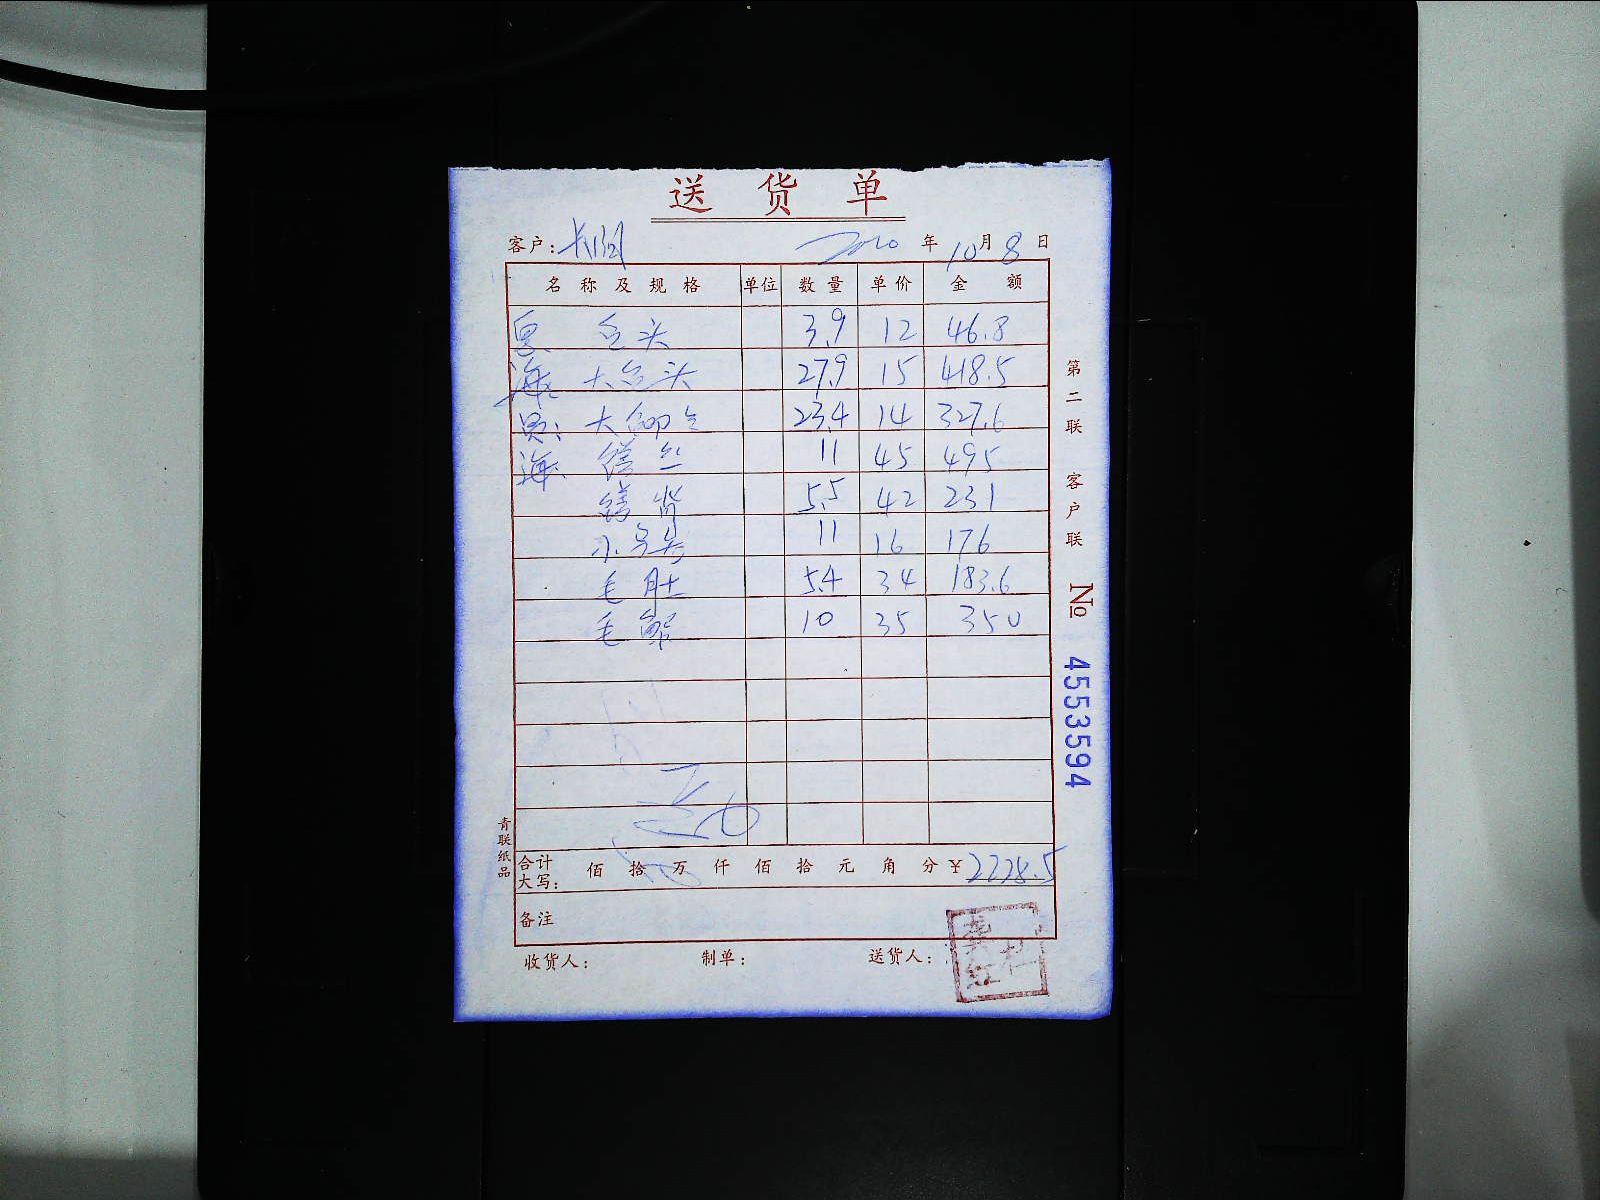 送货单
客户: 2020年10月8日
名称及规格 单位 数量 单价 金额
包头 3.9 12 46.8
海: 大包头 27.9 15 418.5
大 23.4 14 327.6
海: 丝 11 45 495
5.5 42 231
小 11 16 176
毛肚 5.4 34 183.6
毛 10 35 350
合计大写: 佰拾万仟佰拾元角分 ¥2228.5
备注
收货人: 制单: 送货人:
龚红杜
第二联 客户联
№ 4553594
青联纸品